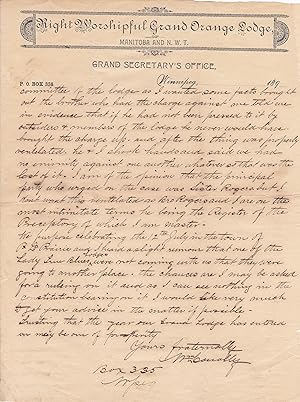 Right Worshipful Grand Orange Lodge,
MANITOBA AND N. W. T.
GRAND SECRETARY'S OFFICE,
P. O. BOX 335 Winnipeg 189
committee to the lodge as I wanted some facts brought
out the brother who had the charge against me told us
in evidence that if he had not been pressed to it by
outsiders & members of the Lodge he never would have
brought the charge up and after the thing was properly
ventilated he & I shook hands and said we had
no enimity against one another whatsoever that was the
last of it. I am of the opinion that principal
party who urged on the case was Sister Rogers but I
dont want this ventilated as Bro Rogers and I are on the
most intimitate terms he being the Register of the
Preceptory of which I am master.
We purpose celebrating the 12 July in the town of
P. La Prairie and I heard a slight rumour that one of the
Lady True Blues Lodges were not coming with us that they were
going to another place. the chances are I may be asked
for a ruling on it and as I can see nothing in the
constitution bearing on it I would like very much
to get your advise in the matter if possible.
Trusting that the year our Grand Lodge has entered
on may be one of prosperity
Yours fraternally
Wm Connolly
Box 335
Wpeg